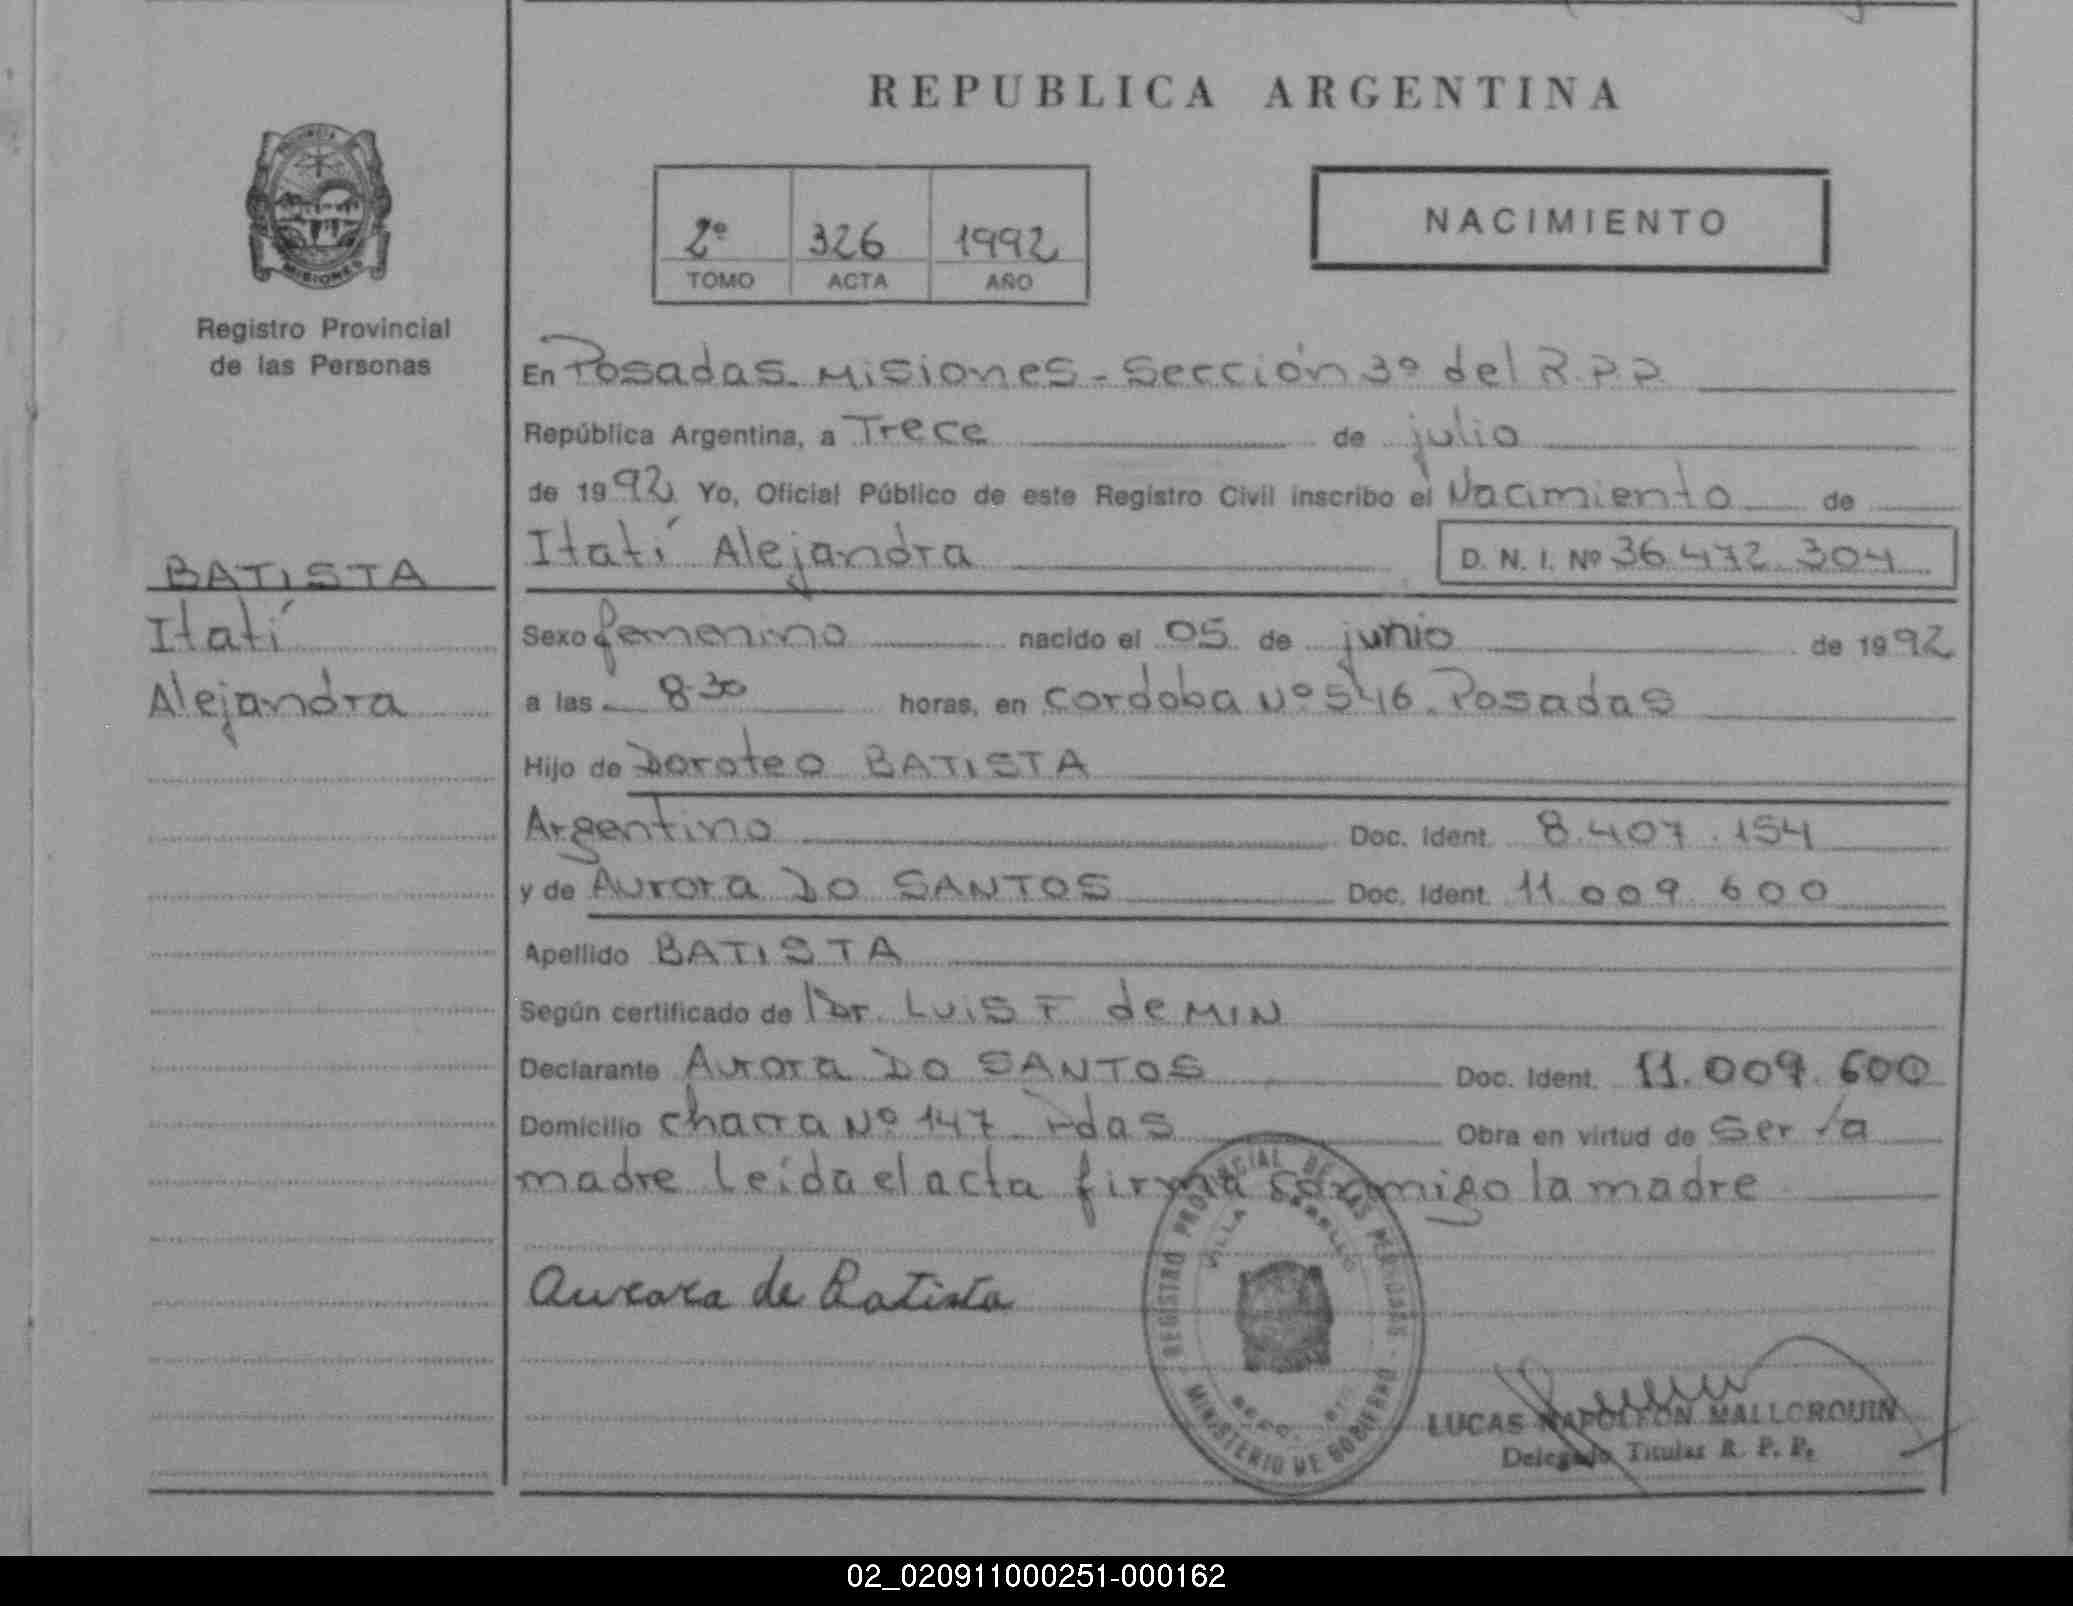 REPUBLICA ARGENTINA
PROVINCIA
MISIONES
Registro Provincial
de las Personas
2º 326 1992
TOMO ACTA AÑO
NACIMIENTO
En Posadas. Misiones - Sección 3º del R.P.P.
República Argentina, a Trece de julio
de 1992 Yo, Oficial Público de este Registro Civil inscribo el Nacimiento de
Itatí Alejandra D. N. I. Nº 36.472.304
BATISTA
Itatí
Alejandra
Sexo femenino nacido el 05 de junio de 1992
a las 8.30 horas, en Cordoba Nº 546. Posadas
Hijo de Doroteo BATISTA
Argentino Doc. Ident. 8.407.154
y de Aurora DO SANTOS Doc. Ident. 11.009.600
Apellido BATISTA
Según certificado de Dr. Luis F de MIN
Declarante Aurora DO SANTOS Doc. Ident. 11.009.600
Domicilio chacra Nº 147 Pdas Obra en virtud de Ser la
madre Leída el acta firma conmigo la madre
REGISTRO PROVINCIAL DE LAS PERSONAS
VILLA
MINISTERIO DE GOBIERNO
Aurora de Batista
LUCAS NAPOLEON MALLORQUIN
Delegado Titular R. P. P.
02_020911000251-000162